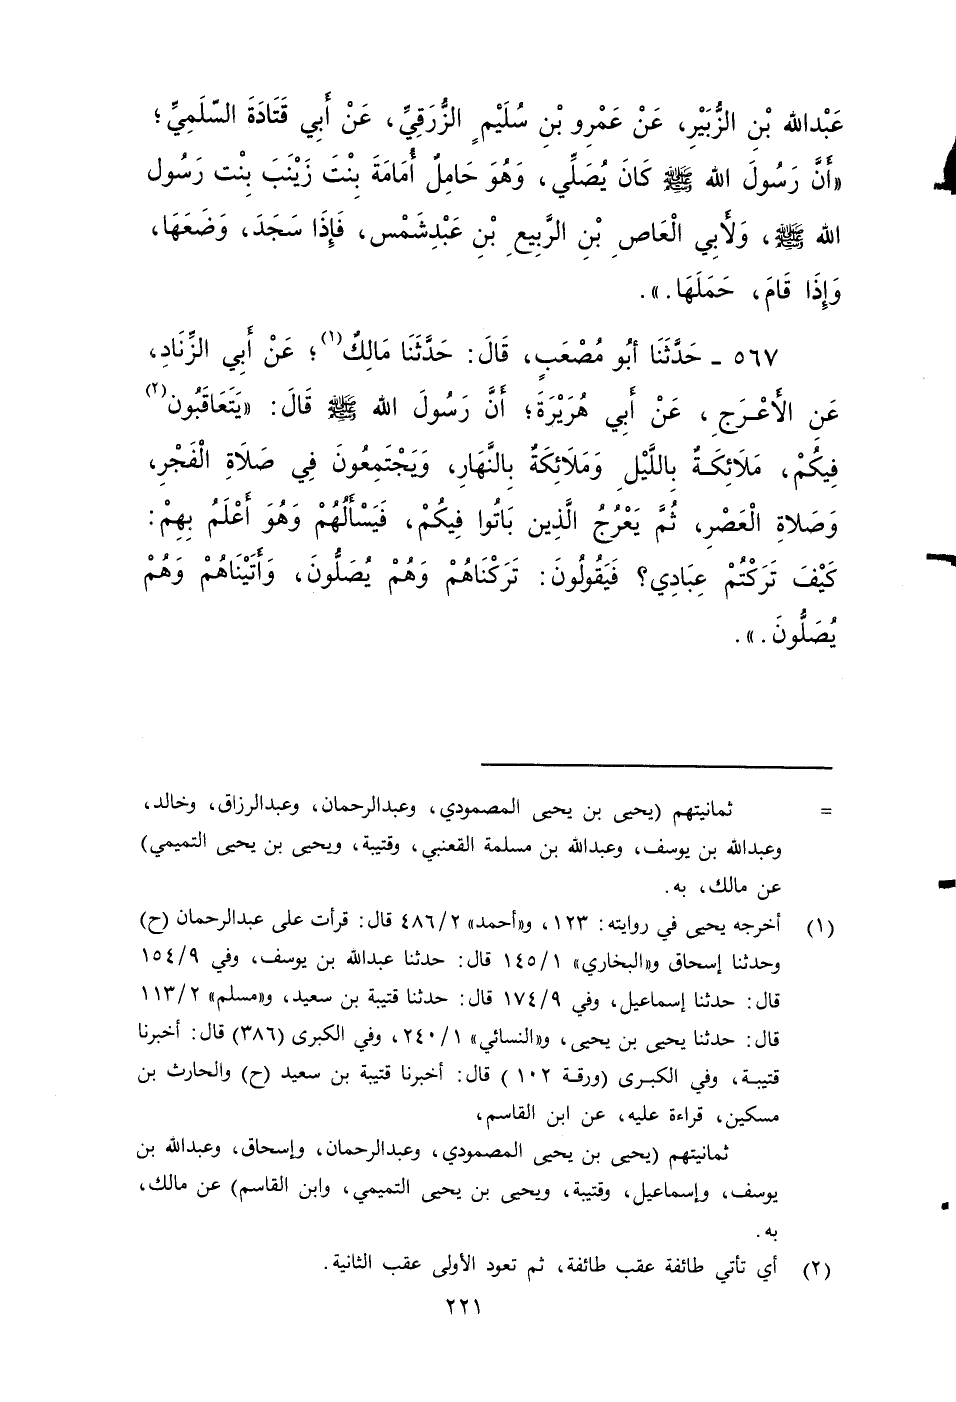 عَبْدالله بْنِ الزُّبَيْرِ، عَنْ عَمْرِو بْنِ سُلَيْمٍ الزُّرَقِيِّ، عَنْ أَبِي قَتَادَةَ السَّلَمِيِّ؛
«أَنَّ رَسُولَ الله ﷺ كَانَ يُصَلِّي، وَهُوَ حَامِلٌ أُمَامَةَ بِنْتَ زَيْنَبَ بِنْت رَسُول
الله ﷺ، وَلأَبِي الْعَاصِ بْنِ الرَّبِيعِ بْنِ عَبْدِشَمْس، فَإِذَا سَجَدَ، وَضَعَهَا،
وَإِذَا قَامَ، حَمَلَهَا.».
٥٦٧ ـ حَدَّثَنَا أبُو مُصْعَبٍ، قَالَ: حَدَّثَنَا مَالِكٌ(١)؛ عَنْ أَبِي الزِّنَادِ،
عَنِ الأَعْرَجِ، عَنْ أَبِي هُرَيْرَةَ؛ أَنَّ رَسُولَ الله ﷺ قَالَ: «يَتَعَاقَبُون(٢)
فِيكُمْ، مَلَائِكَةٌ بِاللَّيْلِ وَمَلَائِكَةٌ بِالنَّهَارِ، وَيَجْتَمِعُونَ فِي صَلَاةِ الْفَجْرِ،
وَصَلاةِ الْعَصْرِ، ثُمَّ يَعْرُجُ الَّذِين بَاتُوا فِيكُمْ، فَيَسْأَلُهُمْ وَهُوَ أَعْلَمُ بِهِمْ:
كَيْفَ تَرَكْتُمْ عِبَادِي؟ فَيَقُولُونَ: تَرَكْنَاهُمْ وَهُمْ يُصَلُّونَ، وَأَتَيْنَاهُمْ وَهُمْ
يُصَلُّونَ.».
= ثمانيتهم (يحيى بن يحيى المصمودي، وعبدالرحمان، وعبدالرزاق، وخالد،
وعبدالله بن يوسف، وعبدالله بن مسلمة القعنبي، وقتيبة، ويحيى بن يحيى التميمي)
عن مالك، به.
(١) أخرجه يحيى في روايته: ١٢٣، و«أحمد» ٤٨٦/٢ قال: قرأت على عبدالرحمان (ح)
وحدثنا إسحاق و«البخاري» ١٤٥/١ قال: حدثنا عبدالله بن يوسف، وفي ١٥٤/٩
قال: حدثنا إسماعيل، وفي ١٧٤/٩ قال: حدثنا قتيبة بن سعيد، و«مسلم» ١١٣/٢
قال: حدثنا يحيى بن يحيى، و«النسائي» ٢٤٠/١، وفي الكبرى (٣٨٦) قال: أخبرنا
قتيبة، وفي الكبرى (ورقة ١٠٢) قال: أخبرنا قتيبة بن سعيد (ح) والحارث بن
مسكين، قراءة عليه، عن ابن القاسم،
ثمانيتهم (يحيى بن يحيى المصمودي، وعبدالرحمان، وإسحاق، وعبدالله بن
يوسف، وإسماعيل، وقتيبة، ويحيى بن يحيى التميمي، وابن القاسم) عن مالك،
به.
(٢) أي تأتي طائفة عقب طائفة، ثم تعود الأولى عقب الثانية.
٢٢١